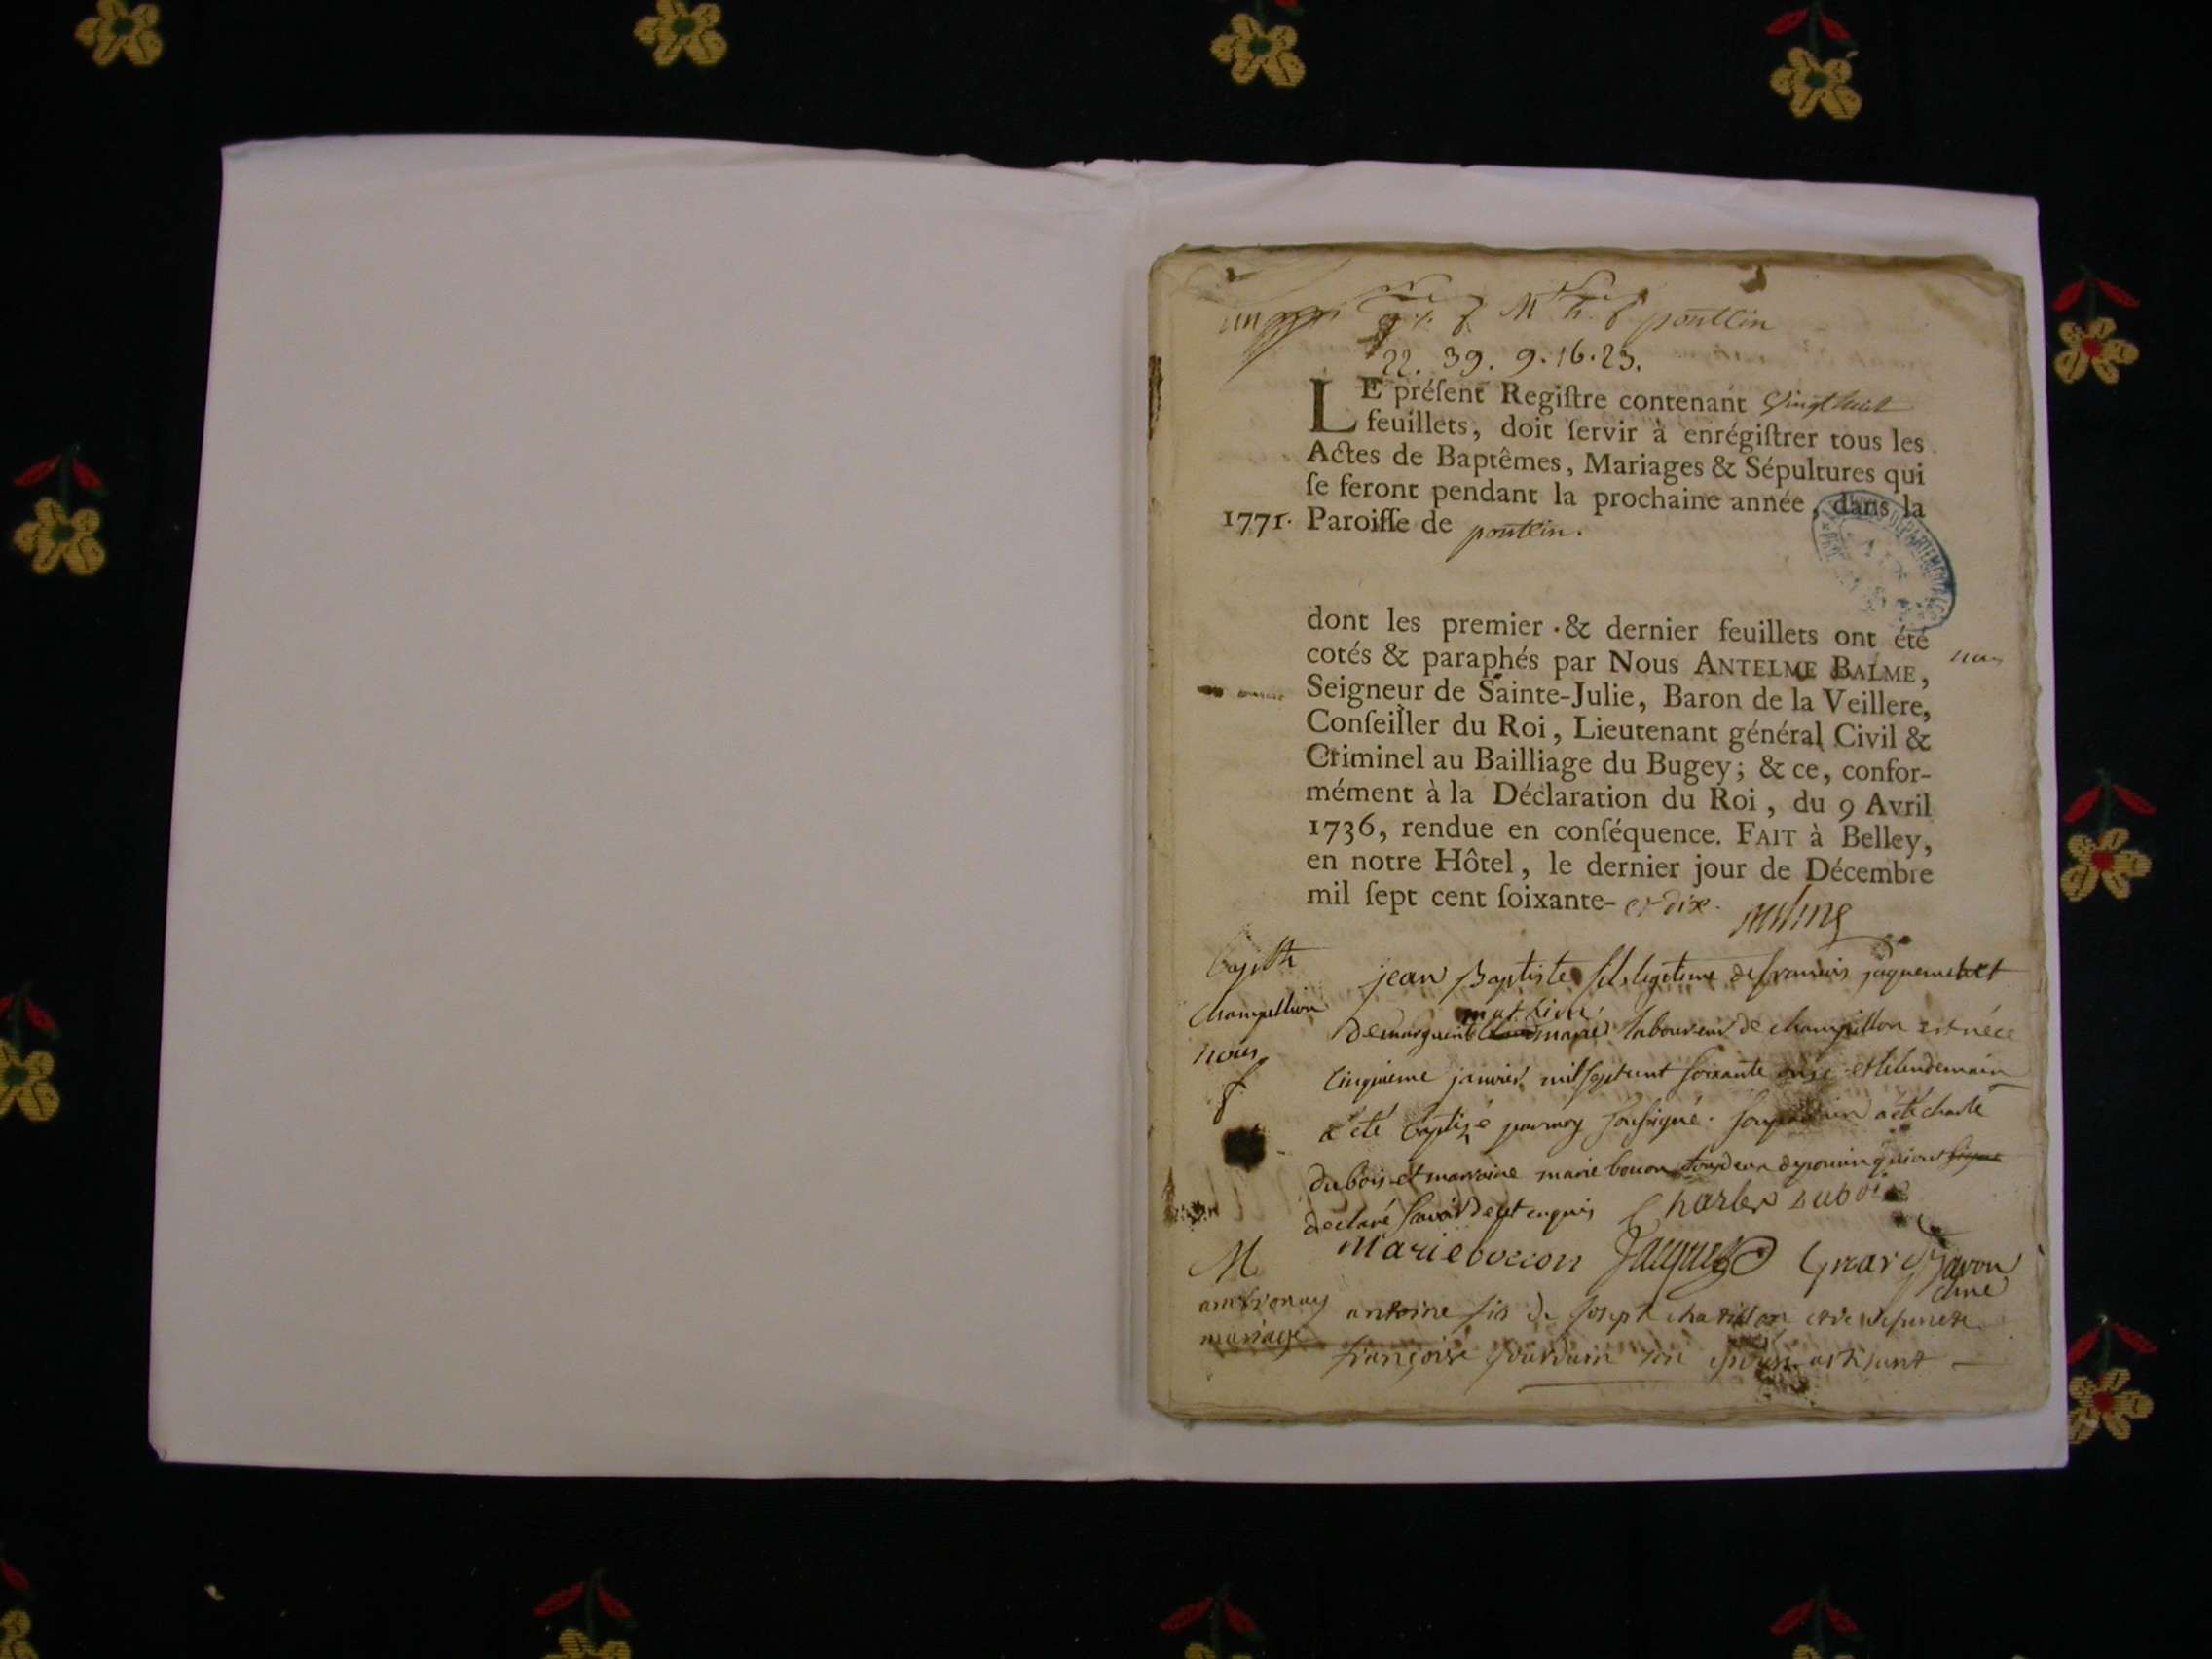 pontcin
22. 39. 9. 16. 23.
LE préſent Regiſtre contenant vingt huit
feuillets, doit ſervir à enrégiſtrer tous les
Actes de Baptêmes, Mariages & Sépultures qui
ſe feront pendant la prochaine année, dans la
1771. Paroiſſe de pontcin.
dont les premier & dernier feuillets ont été
cotés & paraphés par Nous ANTELME BALME,
Seigneur de Sainte-Julie, Baron de la Veillere,
Conſeiller du Roi, Lieutenant général Civil &
Criminel au Bailliage du Bugey; & ce, confor-
mément à la Déclaration du Roi, du 9 Avril
1736, rendue en conſéquence. FAIT à Belley,
en notre Hôtel, le dernier jour de Décembre
mil ſept cent ſoixante- et dix.
jean Baptiste fils legitime de francois jaquemet et
de marguerite mathieu mariés laboureur de champillon est né le
cinquieme janvier mil sept cent soixante onze et le lendemain
a été baptizé par moy soussigné. son parrain a été charle
dubois et marraine marie bocon qui ont signé
declaré savoir de ce enquis Charles Dubois
Marie bocion Jacquet
M
ambronay antoine fils de Joseph chatillon et de defunte
mariage françoise jourdain son epouse